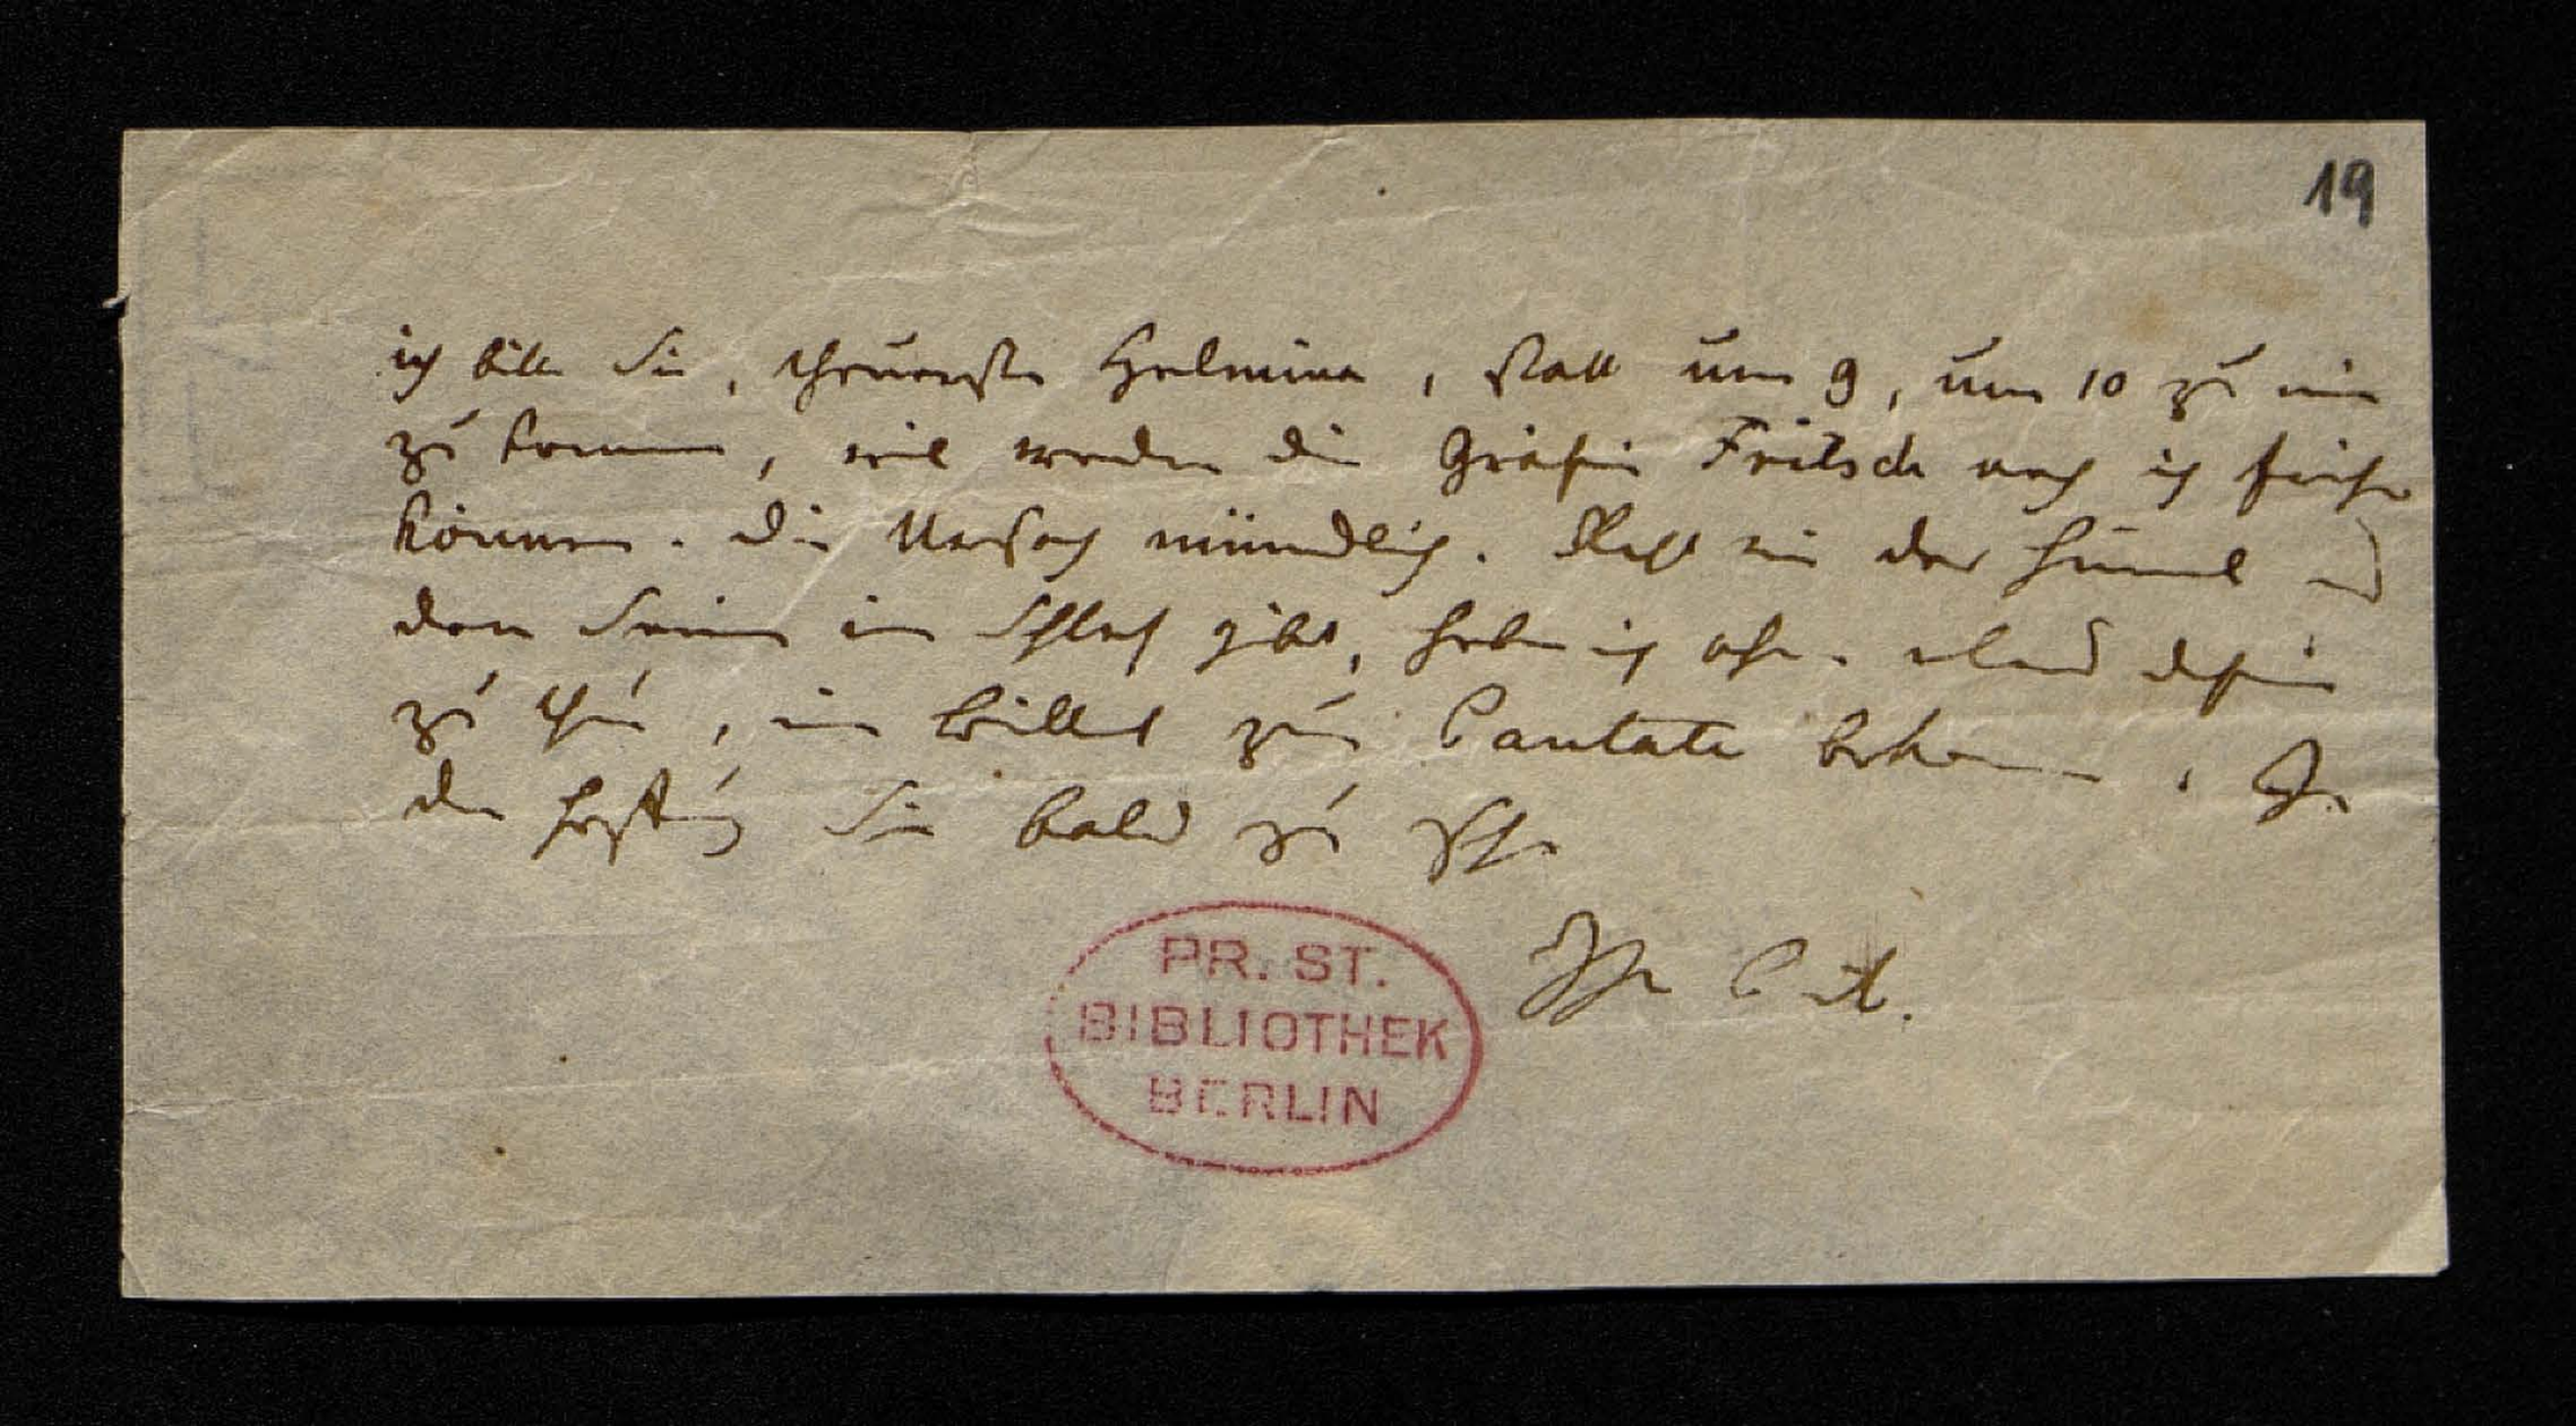 19
ich bitte Sie, theuerste Helmina, statt um 9, um 10 zu mir
zu kommen, weil weder die Gräfin Fritsch noch ich früher
können. Die Ursach mündlich. Recht wie der Himmel es
den Seinen im Schlaf gibt, habe ich ohne etwas dafür
zu thun, ein Billet zur Cantate bekommen. In
der Hoffnung Sie bald zu sehn
Ihr
PR. ST.
BIBLIOTHEK
BERLIN